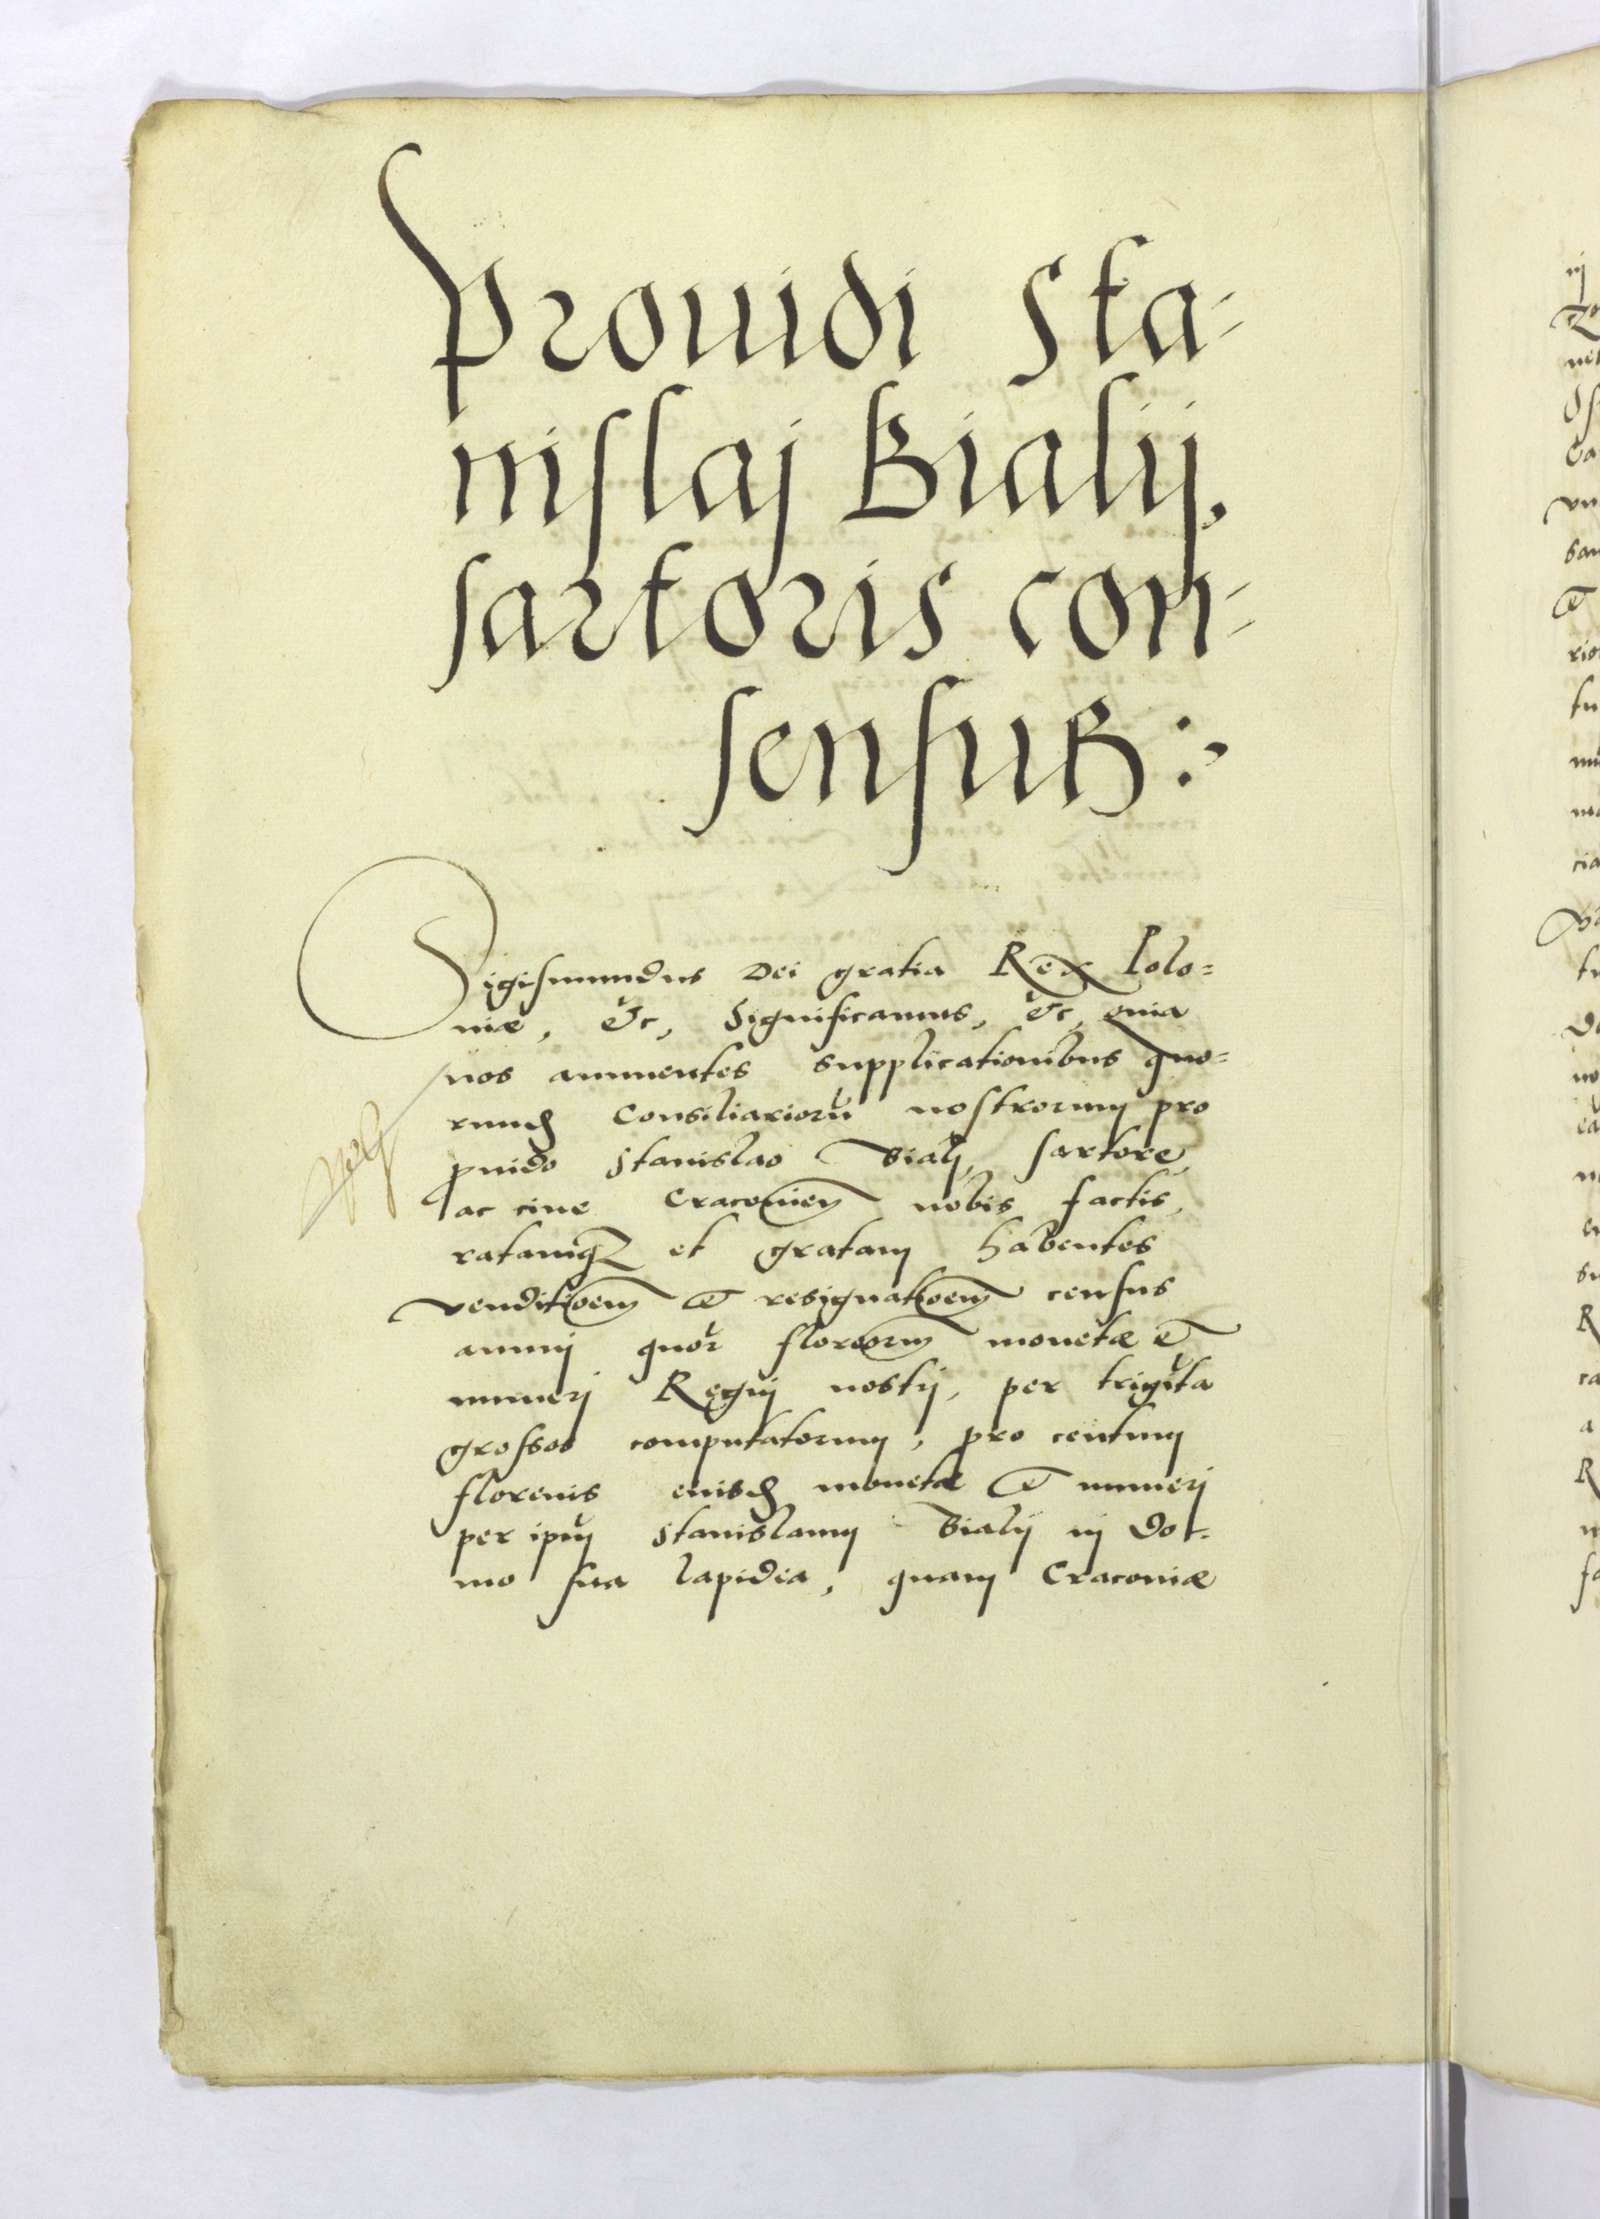 Prouidi Sta-
nislaj Bialij,
sartoris con-
sensuß :,
Sigismundus Dei gratia Rex Polo=
niæ, &c, Significamus, &c, quia
nos annuentes supplicationibus quo=
rund consiliariorū nostrorum pro
prouido Stanislao Bialj, sartore,
ac ciue Cracovien nobis factis,
ratamq et gratam habentes
venditioem et resignatioem census
annuj quor florenorum monetæ et
numerj Regnj nostrj, per trigīta
grossos computatorum, pro centum
florenis eiusd monetæ et numerj
per ipum Stanislaum Bialij in do=
mo sua lapidea, quam Cracoviæ